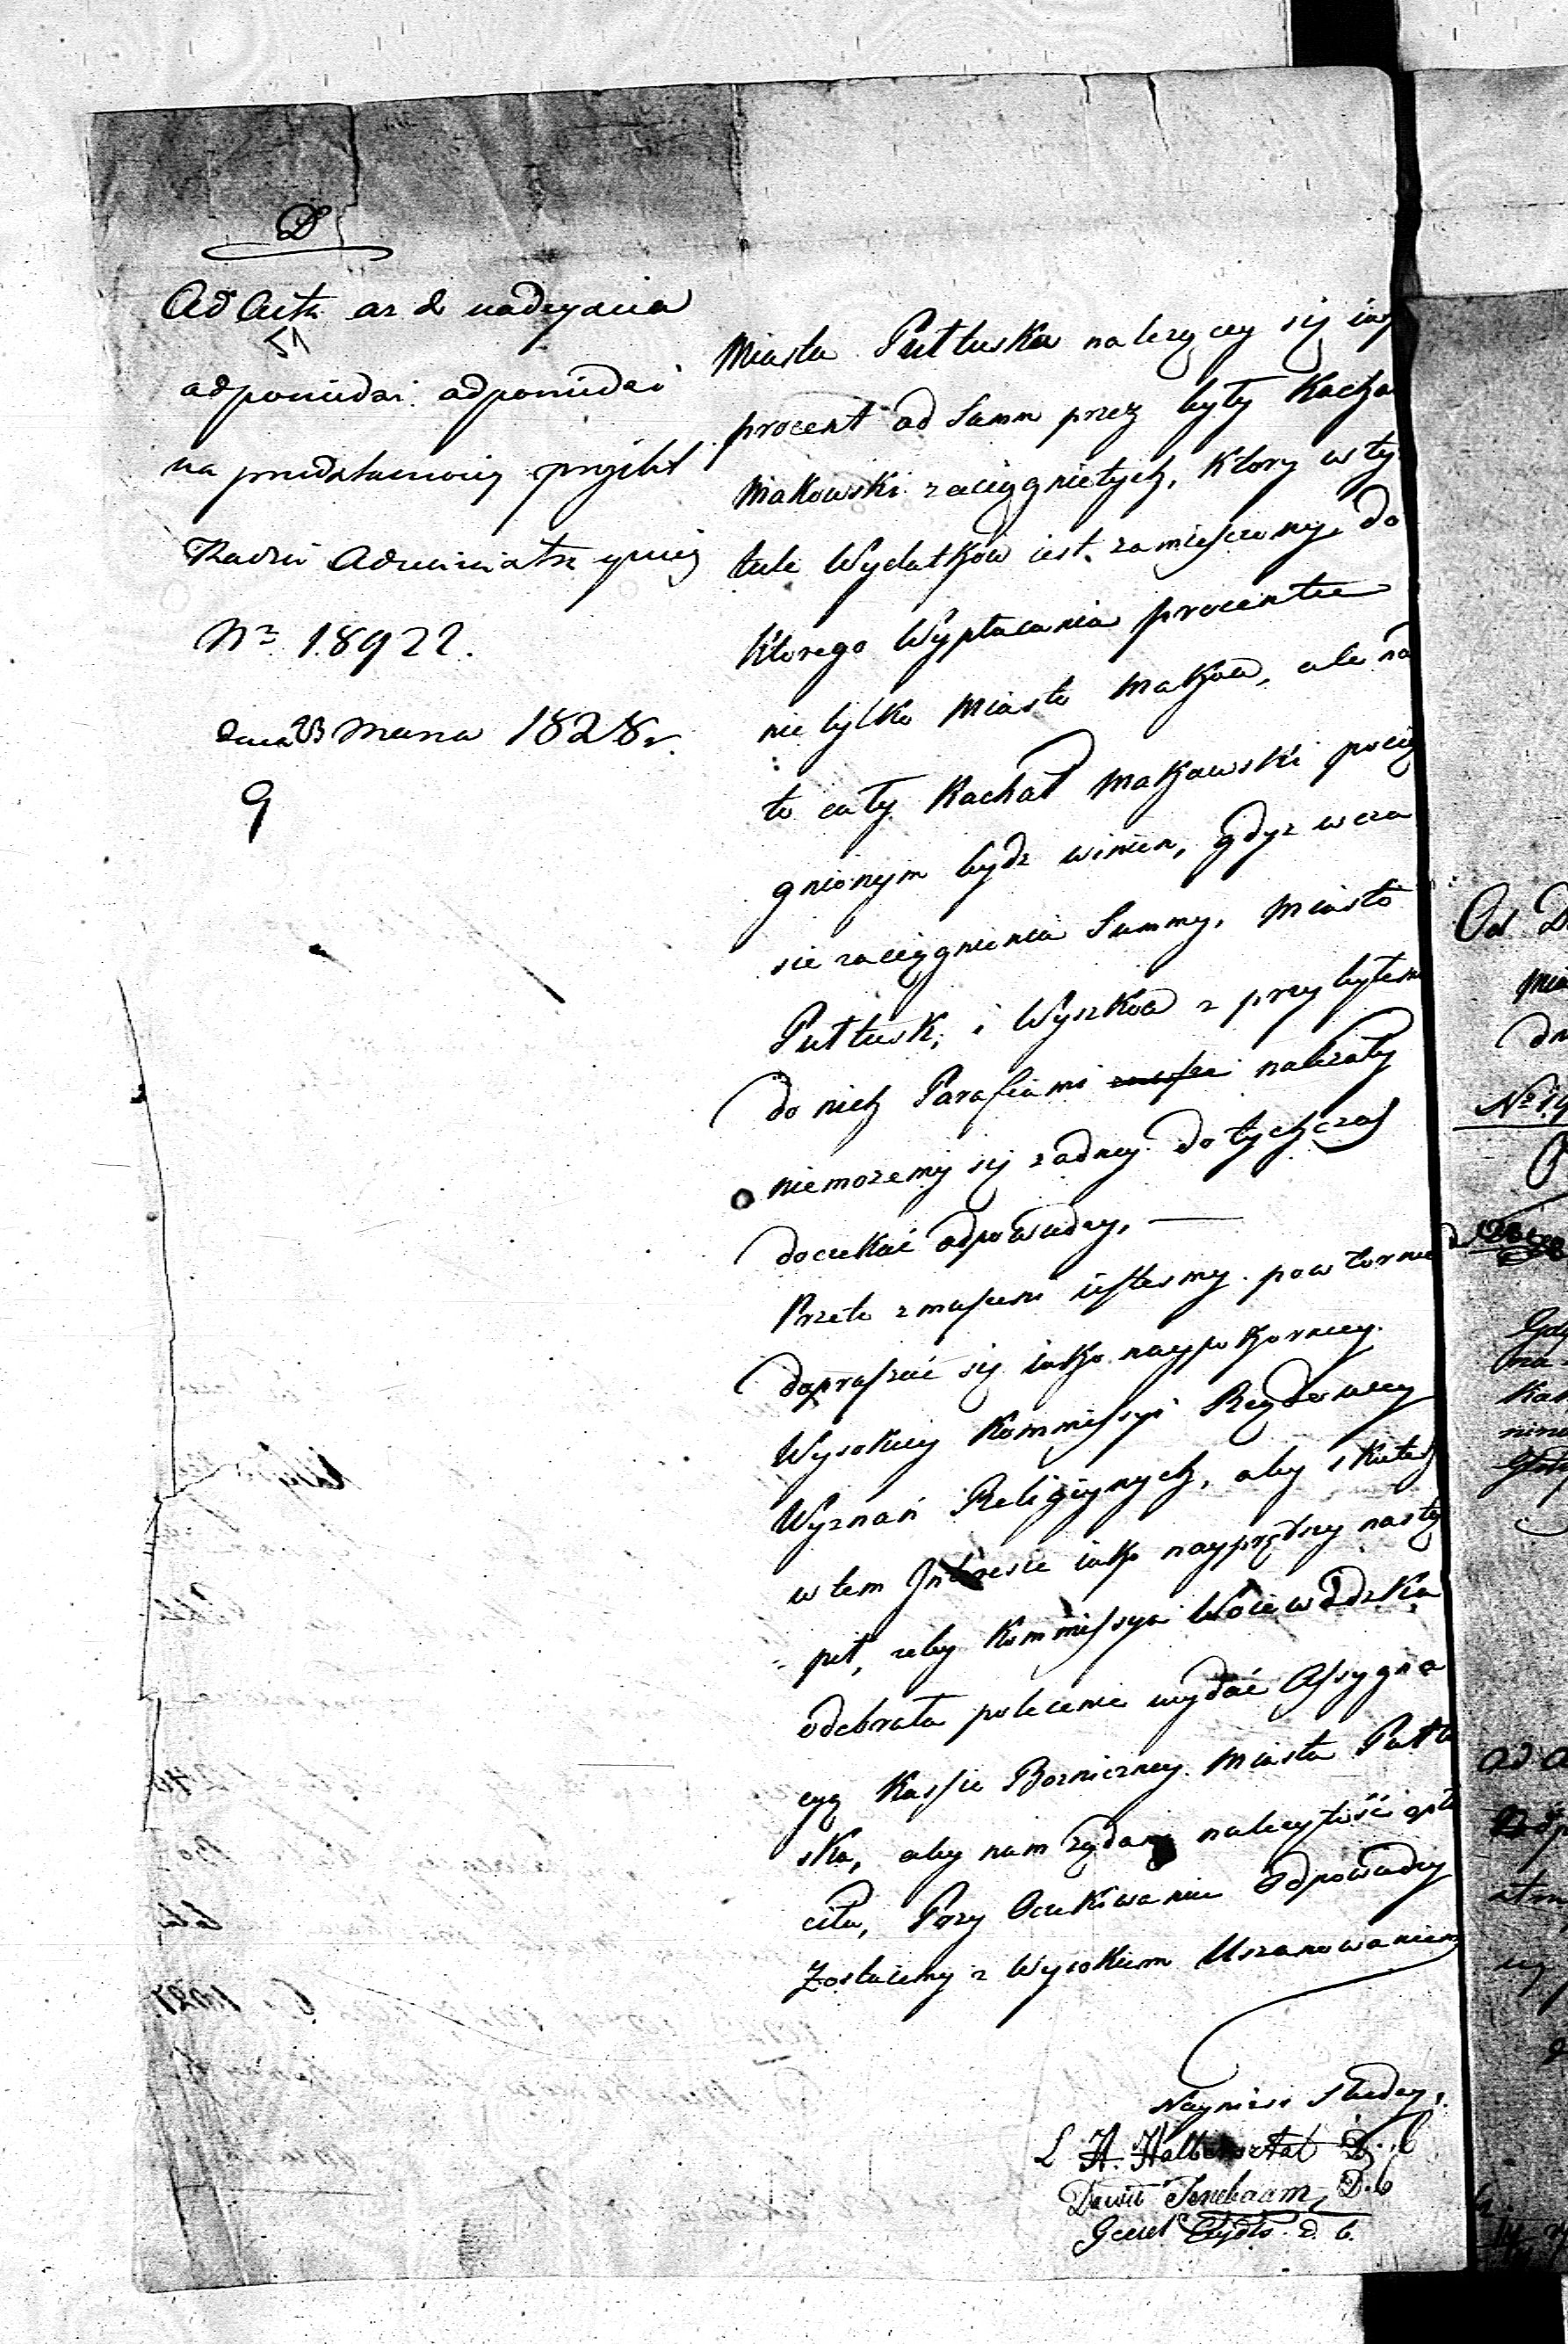 D
Ad Acta aż do nadeyścia
51
odpowiedzi odpowiedzi
na przedstawiony projekt
Radzie Administracyiney
Nro 18922.
dnia 23 Marca 1828 r.
9
Miasta Pułtuska należący się
procent od Summ przez były Kachał
Makowski zaciągniętych, ktory w ty
tule Wydatków iest zamiesczony, do
ktorego Wypłacania procentu
nie tylko Miasto Maków, ale na
to cały Kachał Makowski pocią
gnionym bydz winien, gdyz w cza
sie zaciągnienia Summy, Miasto
Pułtusk, i Wyszków z przybyłemi
do nich Parafiami należały
niemożemy się żadney dotychczas
doczekać odpowiedzy, —
Przeto zmuszeni iestesmy powtornie
dopraszać się iako naypokorniey
Wysokiey Kommissyi Rządowey
Wyznań Religiynych, aby skutek
w tem Interesie iako nayprędszy nastą
pił, żeby Kommissya Woiewódzka
odebrała polecenie wydać Assygna
cyą Kassie Bożniczney Miasta Pułtu
ska, aby nam żądaną należytość opła
ciła, Przy Oczekiwaniu Odpowiedzy
Zostaiemy z Wysokiem Uszanowaniem
Nayniżsi Słudzy,
L H. Halbersztat D. b
Dawid Tenebaum, D. b
D. b.
Od D
Mia
dn
No 19
Gdy
na
Kac
nino
Ad A